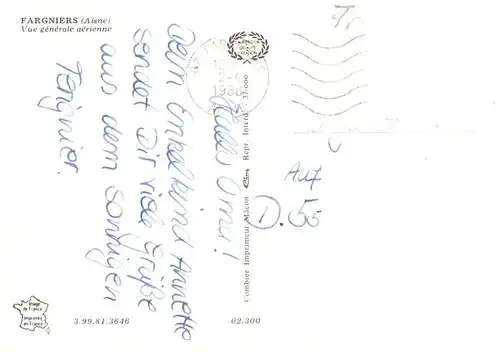 FARGNIERS (Aisne)
Vue générale aérienne
Liebes Omi!
Dein Enkelkind Annette
sendet Dir viele Grüße
aus dem sonnigen
Tergnier.
1986
Combier Imprimeur Mâcon Cim Repr. Interd. 37-000
AUF
D. 55
Image
de France
Imprimée
en France
3.99.81.3646
02.300